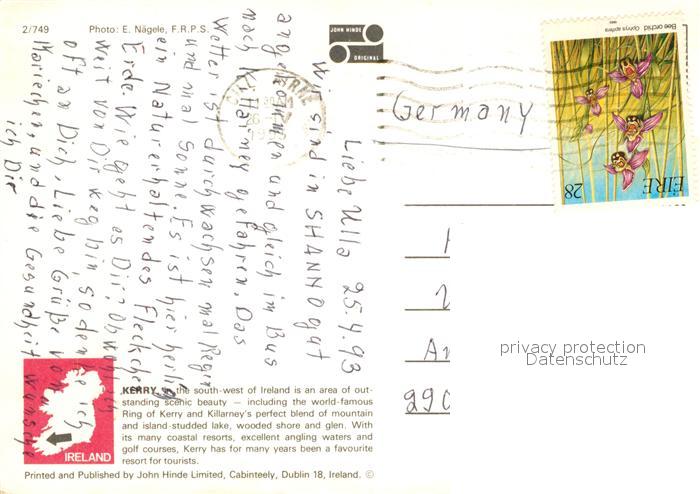 2/749
Photo: E. Nägele, F.R.P.S.
JOHN HINDE
ORIGINAL
Bee orchid Ophrys apifera
28
ÉIRE
Germany
Liebe Ulla 25.4.93
Wir sind in SHANNO gut
angekommen und gleich im Bus
nach Killarney gefahren. Das
Wetter ist durchwachsen mal Regen
und mal Sonne. Es ist hier herrlich
ein Naturerhaltendes Fleckchen
Erde. Wie geht es Dir? Obwohl ich
weit von Dir weg bin, so denke ich
oft an Dich. Liebe Grüße von
Mariechen und die Gesundheit wünsche
ich Dir
290
privacy protection
Datenschutz
IRELAND
KERRY in the south-west of Ireland is an area of out-
standing scenic beauty — including the world-famous
Ring of Kerry and Killarney's perfect blend of mountain
and island-studded lake, wooded shore and glen. With
its many coastal resorts, excellent angling waters and
golf courses, Kerry has for many years been a favourite
resort for tourists.
Printed and Published by John Hinde Limited, Cabinteely, Dublin 18, Ireland. ©